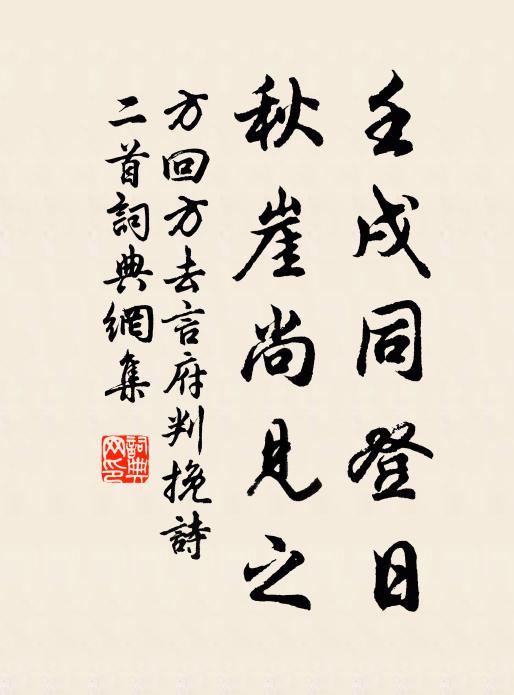 壬戌同登日
秋崖尚見之
方回方去言府判挽詩
二首詞典網集
詞典
网印